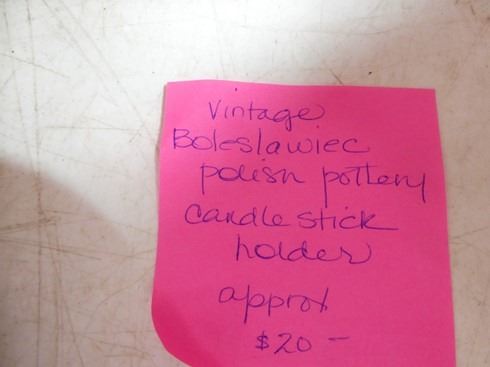 Vintage
Boleslawiec
polish pottery
candle stick
holder
approx
$20 -